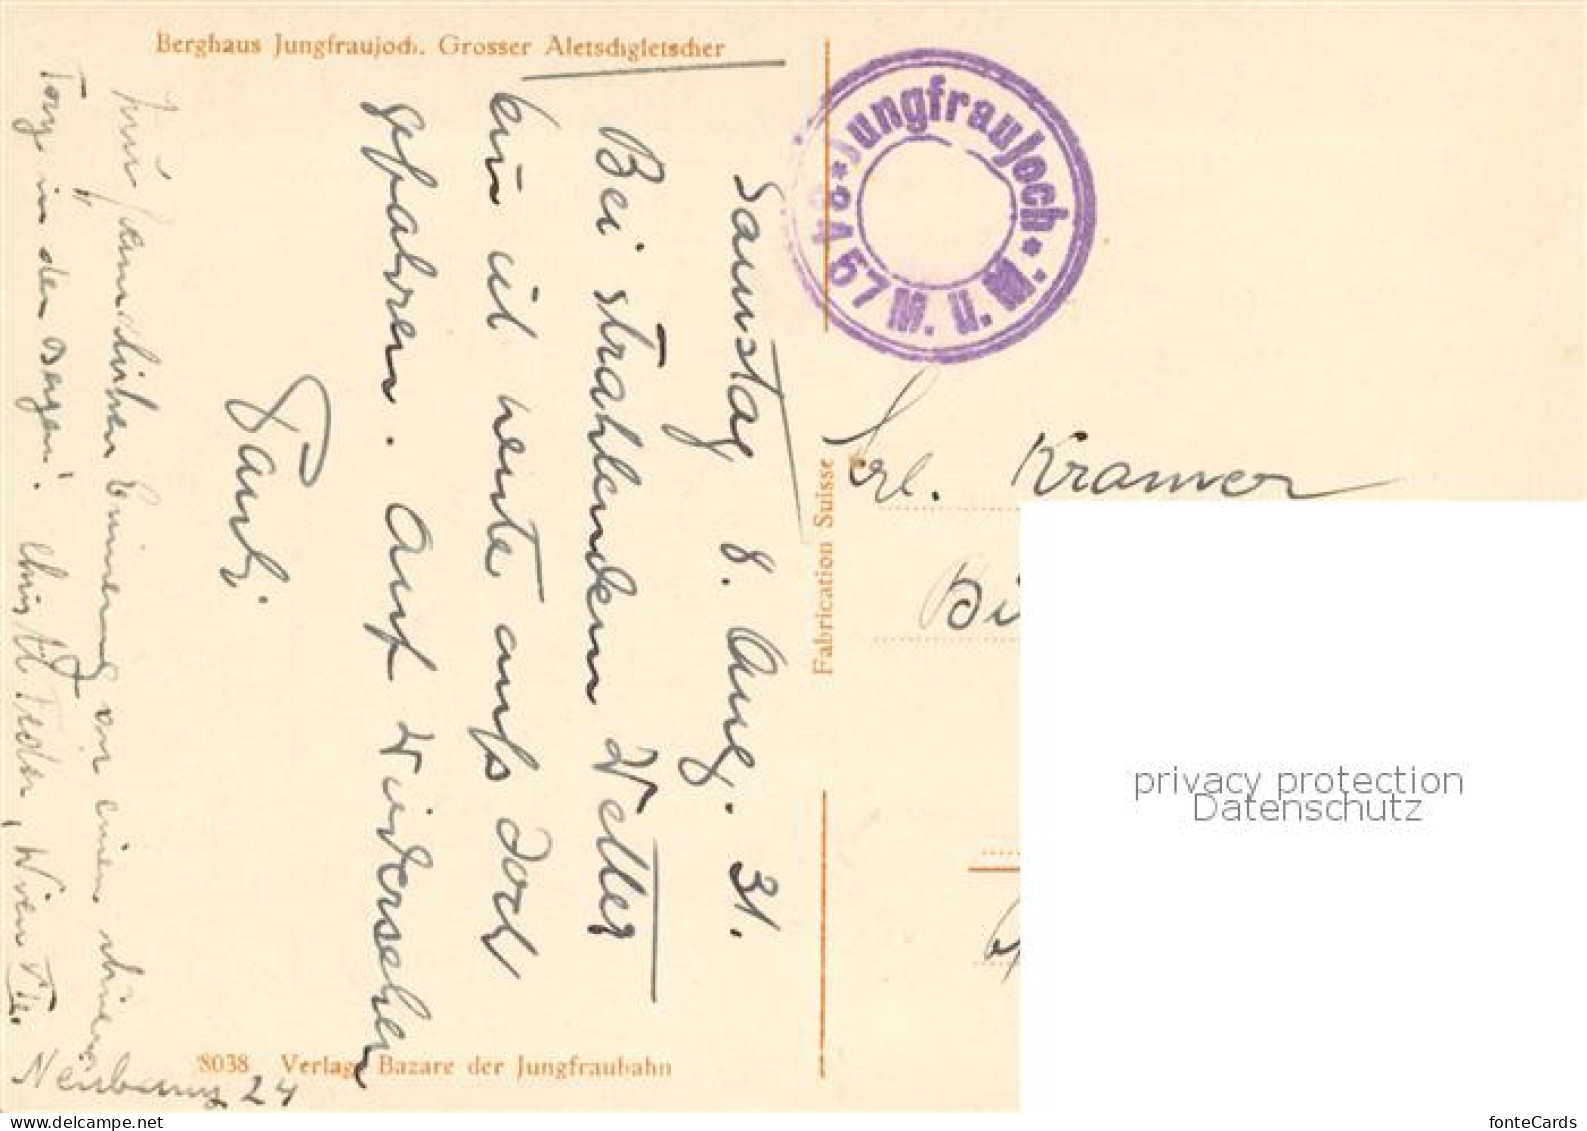 Berghaus Jungfraujoch. Grosser Aletschgletscher
Samstag 8. Aug. 31.
Bei strahlendem Wetter
bin ich heute aufs Joch
gefahren. Auf Wiedersehen
Pauli
Zur freundlichen Erinnerung an einen schönen
Tag in den Bergen!
Wien VII.
Neubaug 24
8038 Verlag Bazare der Jungfraubahn
Fabrication Suisse
Jungfraujoch
3457 M. ü. M.
Frl. Kramer
Bi
privacy protection
Datenschutz
fonteCards